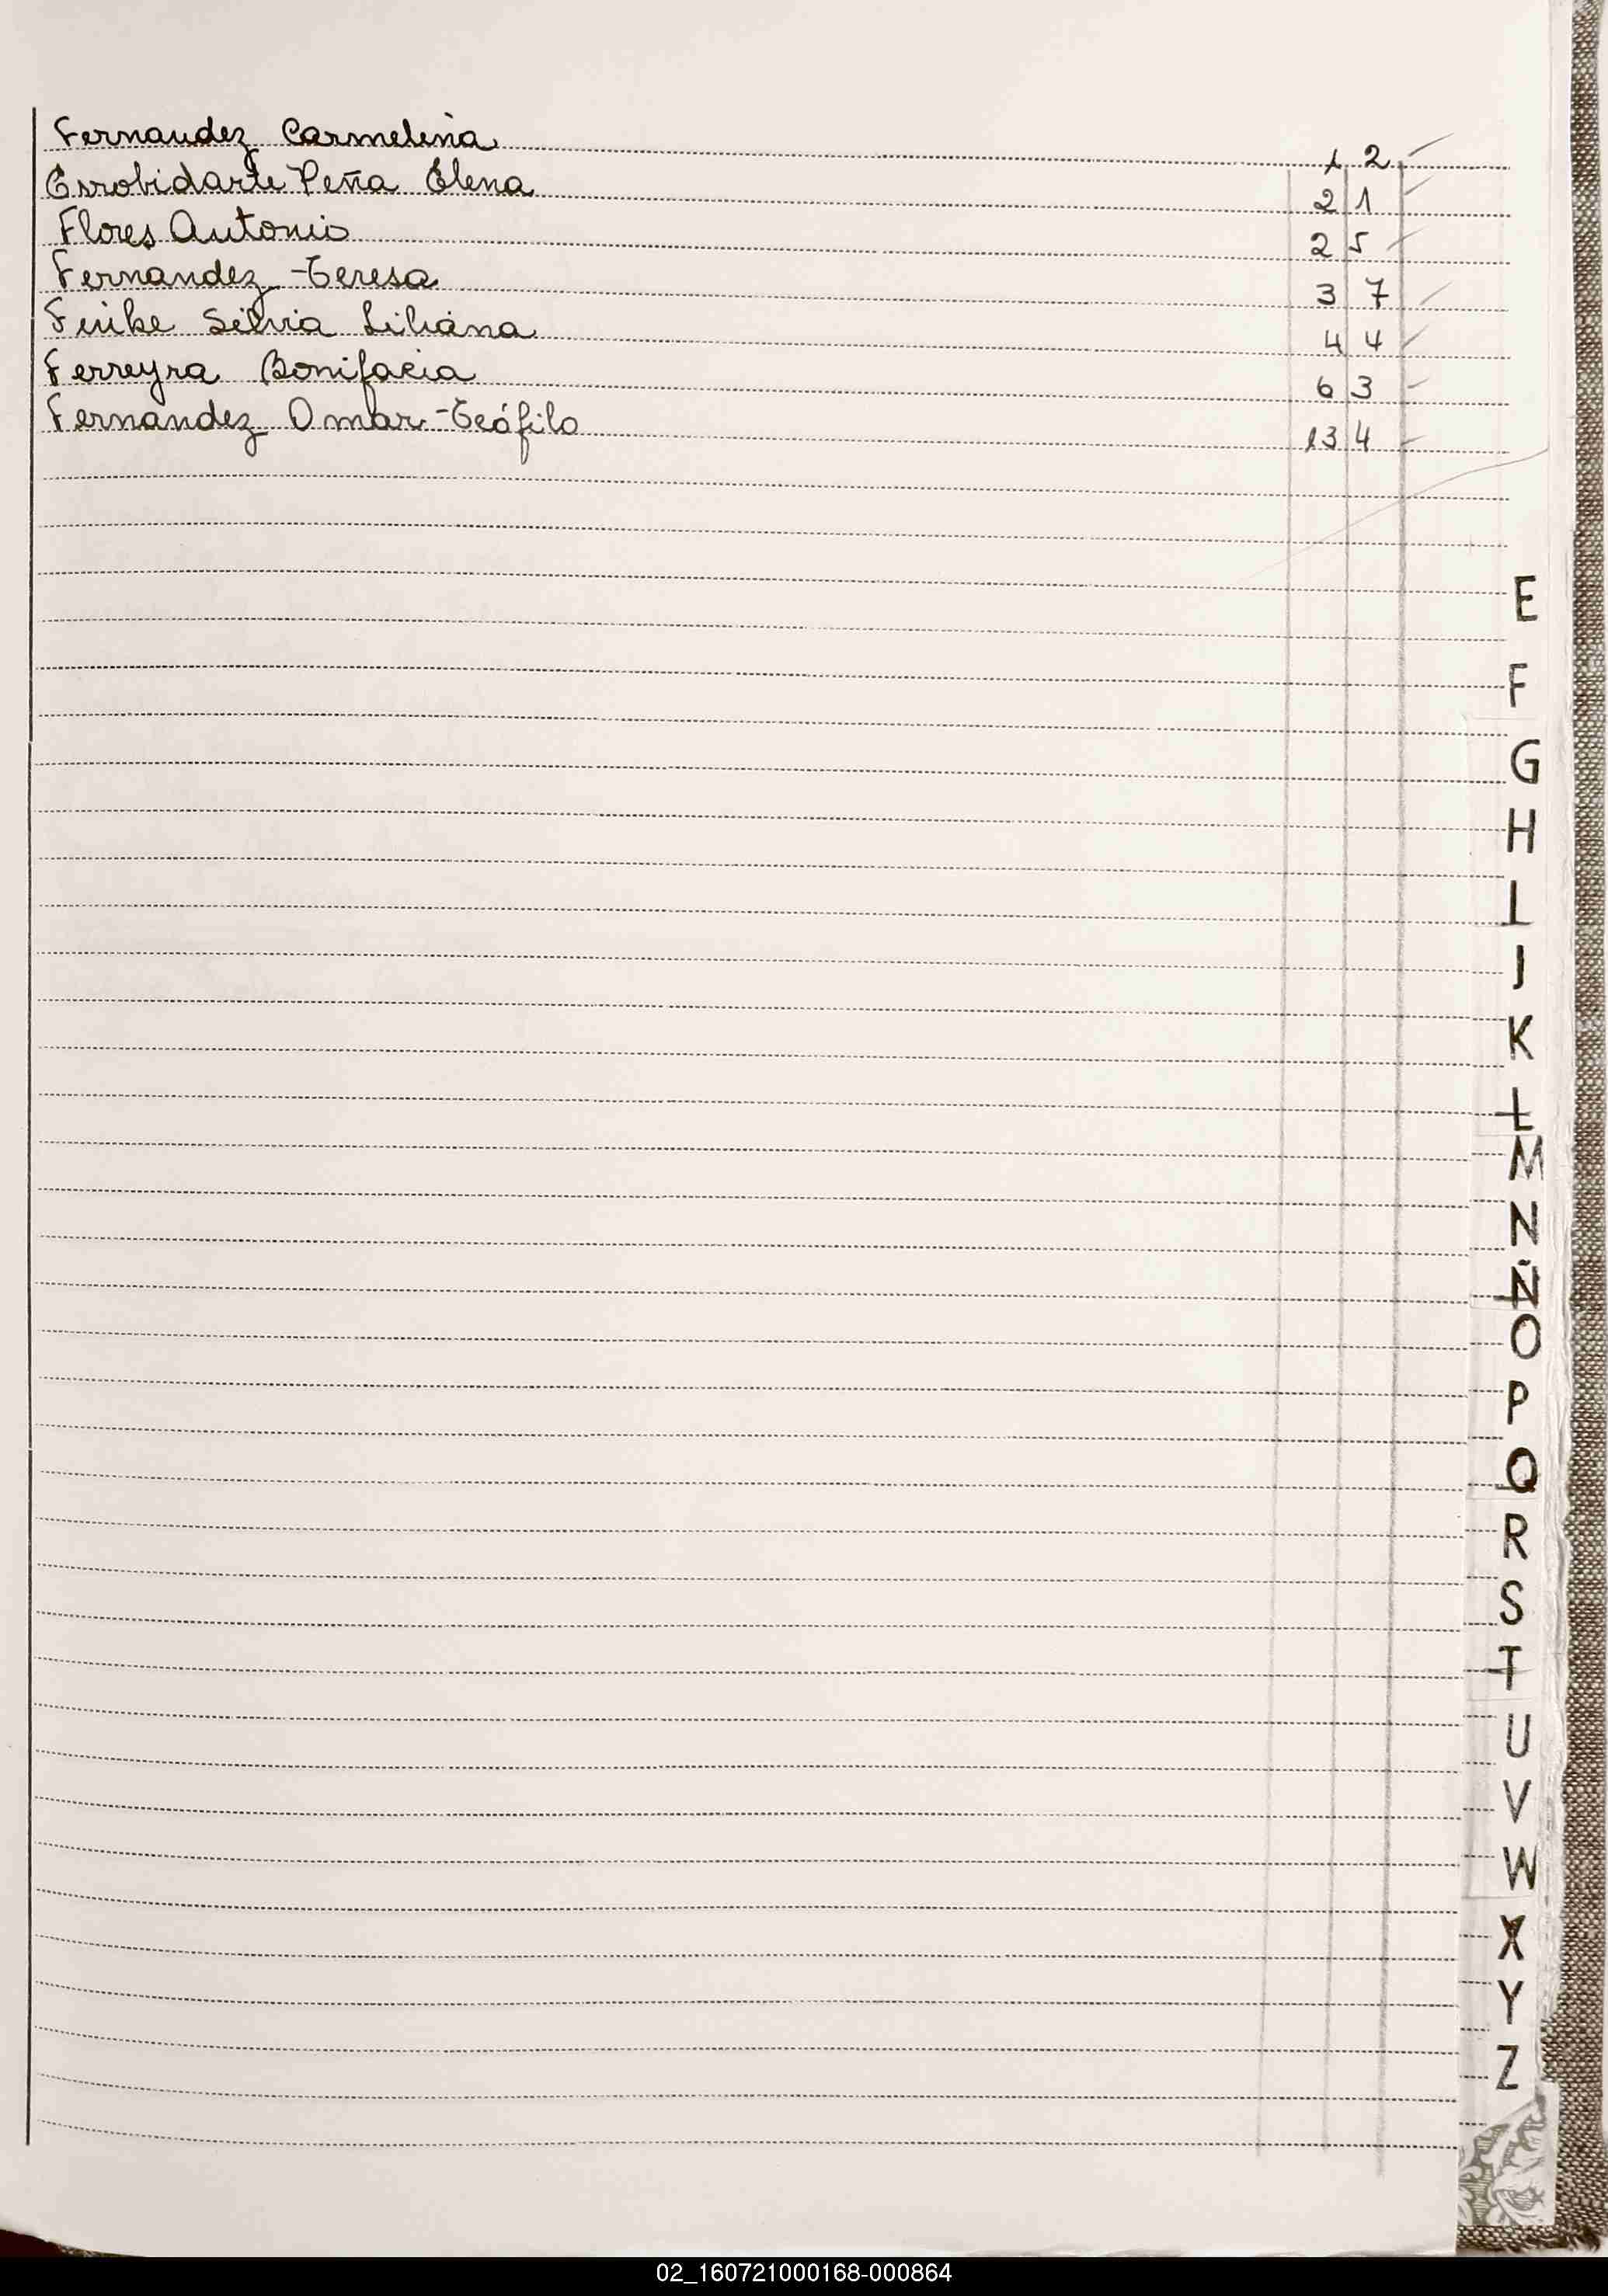 Fernandez Carmelina 1 2
Esrobidarte Peña Elena 2 1
Flores Antonio 2 5
Fernandez Teresa 3 7
Silvia Liliana 4 4
Ferreyra Bonifacia 6 3
Fernandez Omar Teófilo 13 4
E
F
G
H
I
J
K
L
M
N
Ñ
O
P
Q
R
S
T
U
V
W
X
Y
Z
02_160721000168-000864